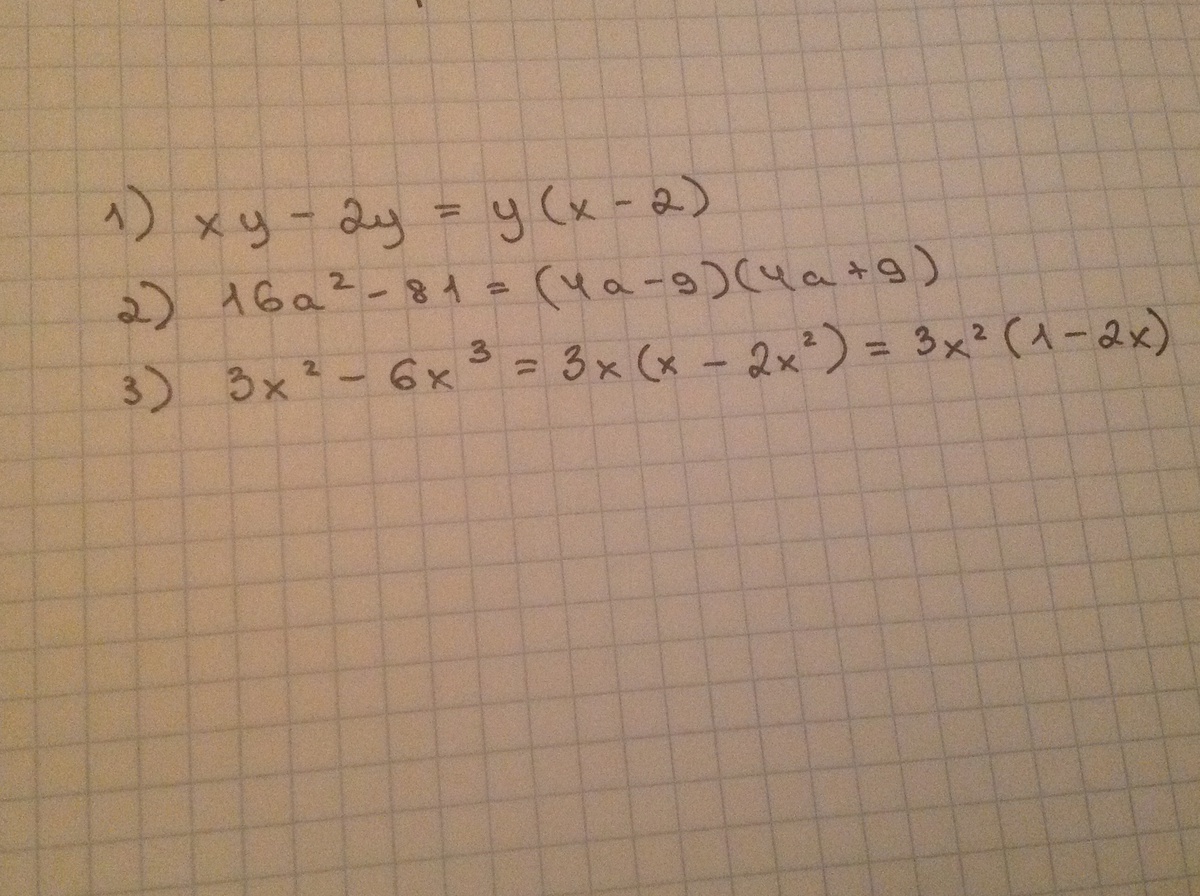 1) xy - 2y = y(x - 2)
2) 16a² - 81 = (4a - 9)(4a + 9)
3) 3x² - 6x³ = 3x(x - 2x²) = 3x²(1 - 2x)